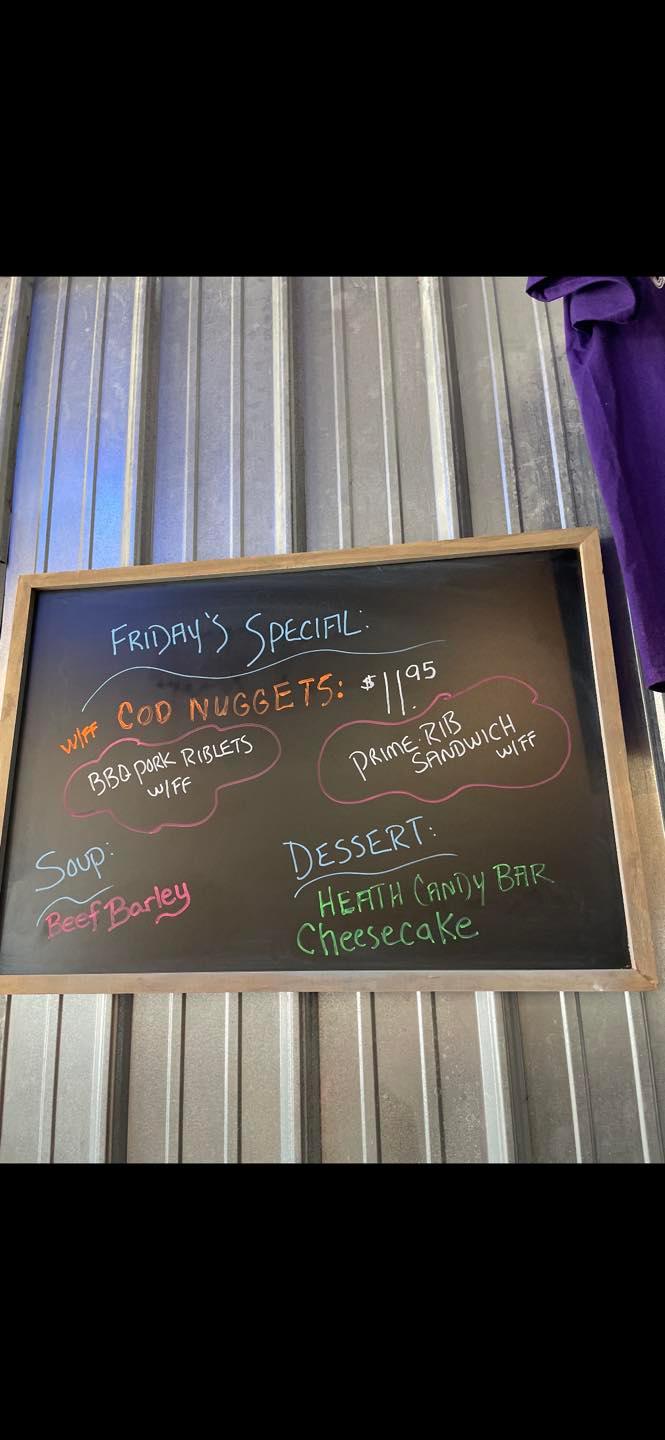 FRIDAY'S SPECIAL:
W/FF COD NUGGETS: $11.95
BBQ PORK RIBLETS
W/FF
PRIME RIB
SANDWICH
W/FF
Soup:
Beef Barley
DESSERT:
HEATH CANDY BAR
Cheesecake